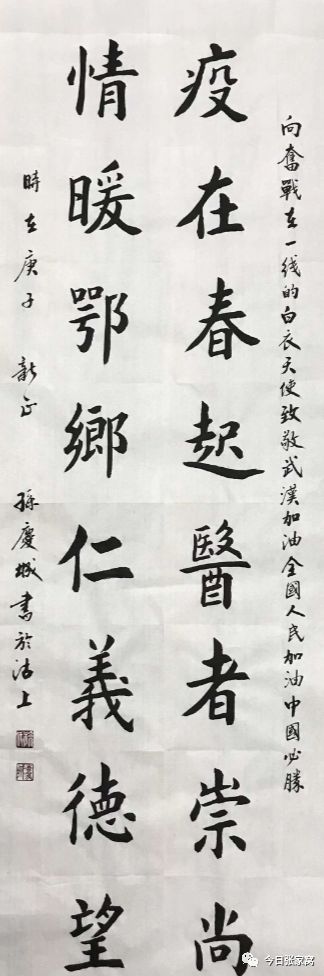 向奮戰在一线的白衣天使致敬武漢加油全國人民加油中國必勝
疫在春起醫者崇尚
情暖鄂鄉仁義德望
時在庚子新正 孫慶城書於沽上
今日张家窝